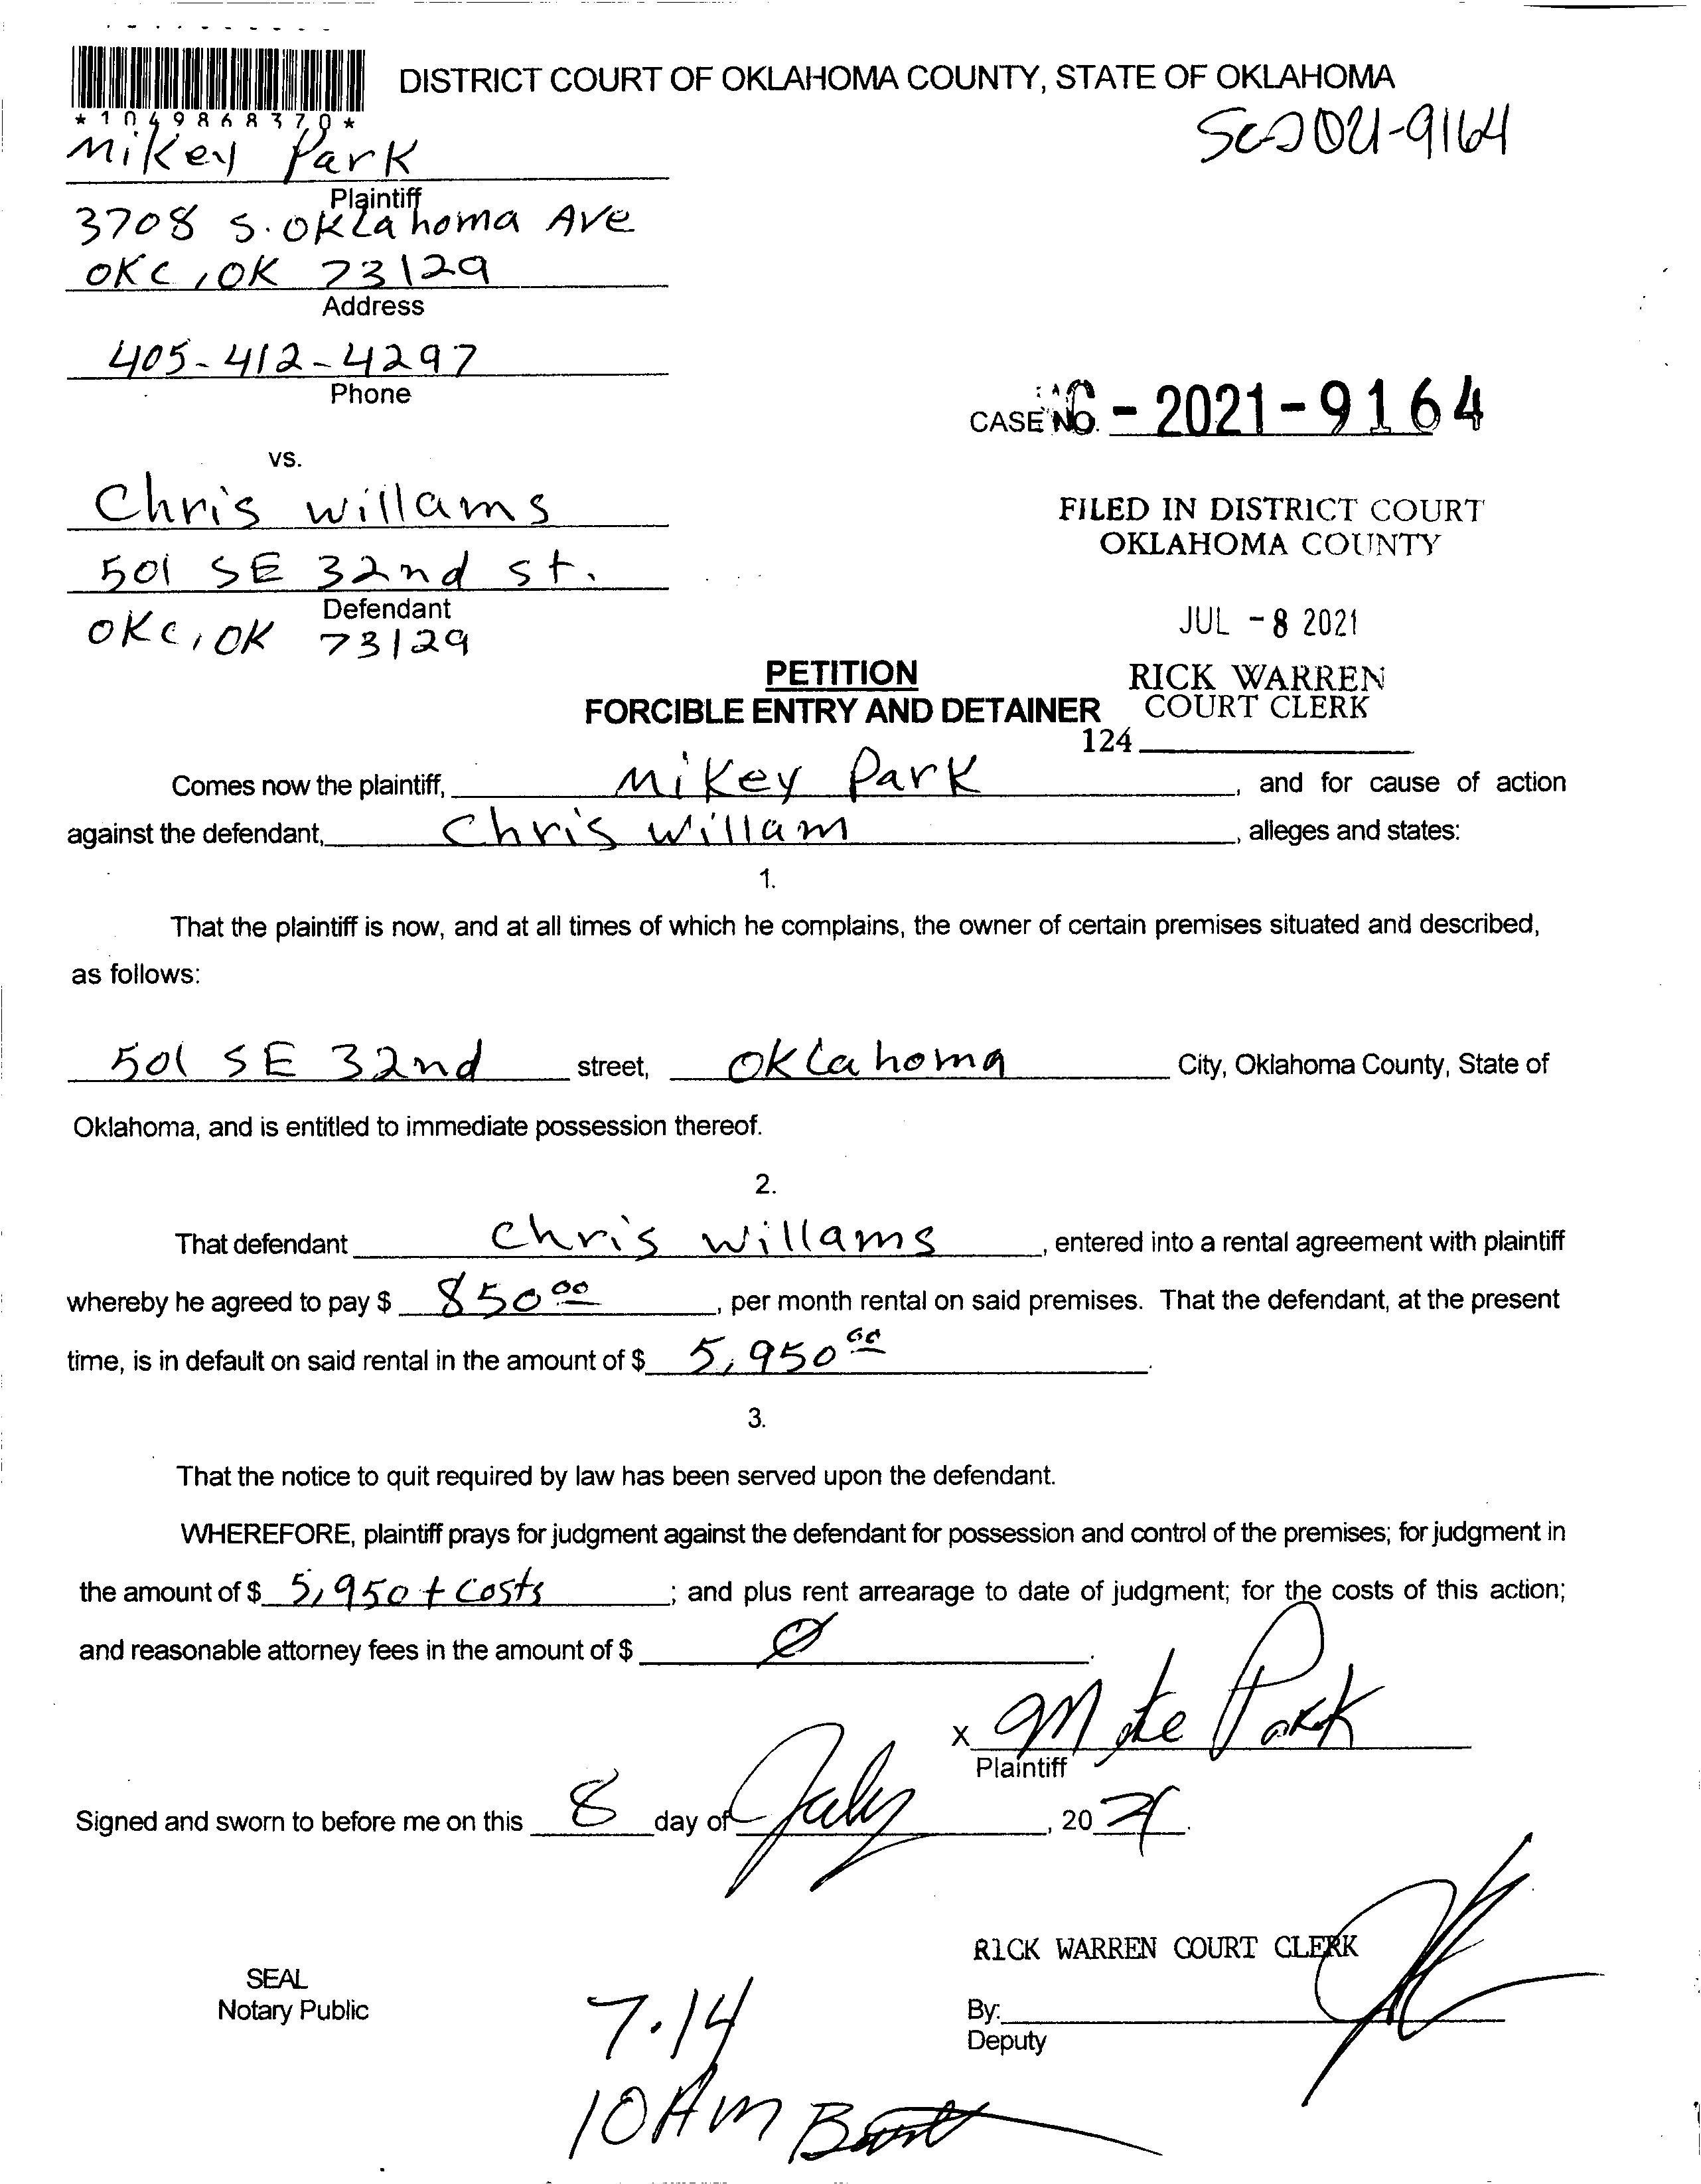 DISTRICT COURT OF OKLAHOMA COUNTY, STATE OF OKLAHOMA
*1049868370*
SC-2021-9164
Mikey Park
Plaintiff
3708 S. Oklahoma Ave
OKC, OK 73129
Address
405-412-4297
Phone
CASE NO. - 2021-9164
vs.
Chris willams
501 SE 32nd st.
Defendant
OKC, OK 73129
FILED IN DISTRICT COURT
OKLAHOMA COUNTY
JUL -8 2021
RICK WARREN
COURT CLERK
124
PETITION
FORCIBLE ENTRY AND DETAINER
Comes now the plaintiff, Mikey Park, and for cause of action
against the defendant, Chris Willam, alleges and states:
1.
That the plaintiff is now, and at all times of which he complains, the owner of certain premises situated and described,
as follows:
501 SE 32nd street, Oklahoma City, Oklahoma County, State of
Oklahoma, and is entitled to immediate possession thereof.
2.
That defendant Chris Willams, entered into a rental agreement with plaintiff
whereby he agreed to pay $ 850 00, per month rental on said premises. That the defendant, at the present
time, is in default on said rental in the amount of $ 5,950 00.
3.
That the notice to quit required by law has been served upon the defendant.
WHEREFORE, plaintiff prays for judgment against the defendant for possession and control of the premises; for judgment in
the amount of $ 5,950 + Costs; and plus rent arrearage to date of judgment; for the costs of this action;
and reasonable attorney fees in the amount of $ Ø.
x Mike Park
Plaintiff
Signed and sworn to before me on this 8 day of July, 20 21.
RICK WARREN COURT CLERK
SEAL
Notary Public
By:
Deputy
7.14
10 Am